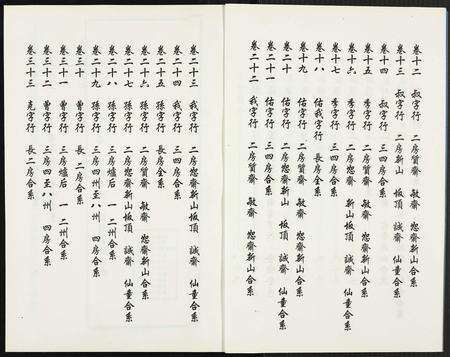 卷十二 叔字行 二房質齋 敏齋 恕齋新山合系
卷十三 叔字行 二房新山 坂頂 誠齋 仙童合系
卷十四 叔字行 三四房合系
卷十五 季字行 二房質齋 敏齋 恕齋新山合系
卷十六 季字行 二房恕齋新山坂頂 誠齋 仙童合系
卷十七 季字行 三四房合系
卷十八 佑我字行 長房全系
卷十九 佑字行 二房質齋 敏齋 恕齋新山合系
卷二十 佑字行 二房新山 坂頂 誠齋 仙童合系
卷二十一 佑字行 三四房合系
卷二十二 我字行 二房質齋 敏齋 恕齋新山合系
卷二十三 我字行 二房恕齋新山坂頂 誠齋 仙童合系
卷二十四 我字行 三四房合系
卷二十五 孫字行 長房全系
卷二十六 孫字行 二房質齋 敏齋 恕齋新山合系
卷二十七 孫字行 二房恕齋新山坂頂 誠齋 仙童合系
卷二十八 孫字行 三房爐后 一 二州合系
卷二十九 孫字行 三房四至八州 四房合系
卷三十 曹字行 長 二房合系
卷三十一 曹字行 三房爐后 一 二州合系
卷三十二 曹字行 三房四至八州 四房合系
卷三十三 克字行 長二房合系